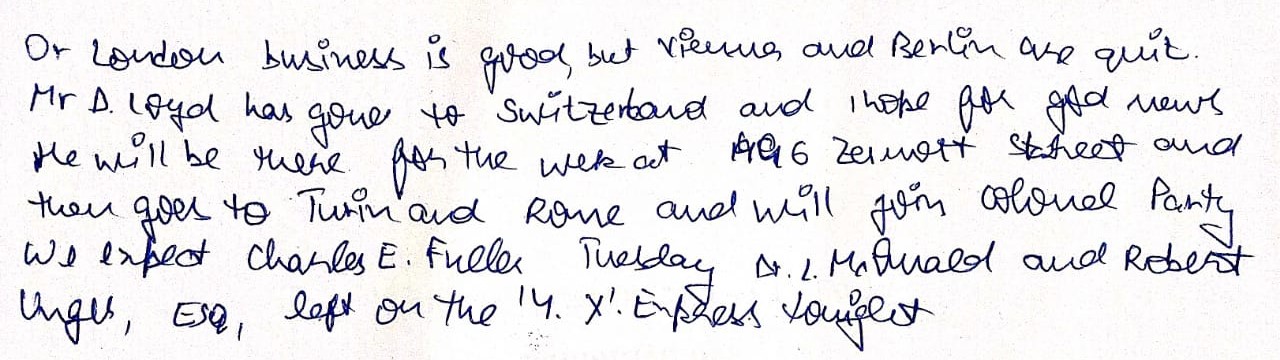 Or London business is good, but Vienna and Berlin are quit.
Mr D. Loyd has gone to Switzerland and I hope for good news
He will be there for the wek at 496 Zermott Street and
then goes to Turin and Rome and will join Colonel Parity
We expect Charles E. Fuller Tuesday Dr. L. McDuald and Robert
Unger, ESQ, left on the 'Y. X'. Express tonight